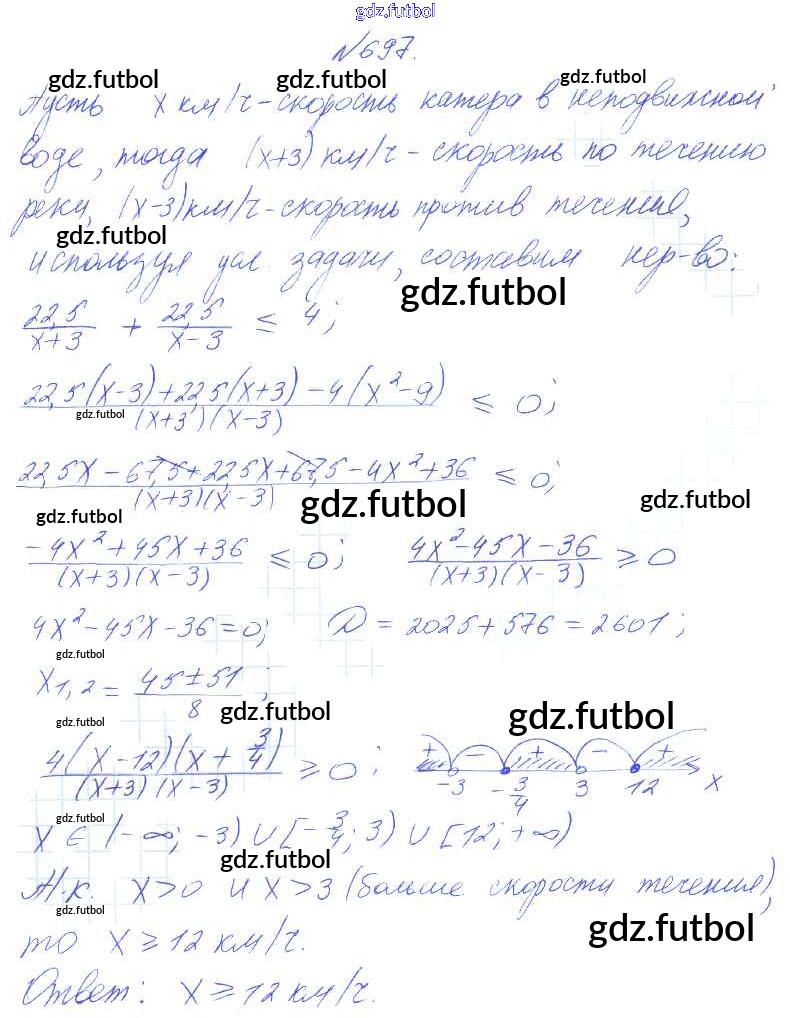 gdz.futbol
№697.
gdz.futbol gdz.futbol gdz.futbol
Пусть x км/ч - скорость катера в неподвижной
воде, тогда (x+3) км/ч - скорость по течению
реки, (x-3) км/ч - скорость против течения,
gdz.futbol
используя усл. задачи, составим нер-во:
gdz.futbol
22,5/(x+3) + 22,5/(x-3) ≤ 4;
(22,5(x-3)+22,5(x+3)-4(x²-9))/((x+3)(x-3)) ≤ 0;
gdz.futbol
(22,5x-67,5+22,5x+67,5-4x²+36)/((x+3)(x-3)) ≤ 0;
gdz.futbol gdz.futbol gdz.futbol
(-4x²+45x+36)/((x+3)(x-3)) ≤ 0; (4x²-45x-36)/((x+3)(x-3)) ≥ 0
4x²-45x-36=0; D = 2025+576 = 2601;
gdz.futbol
x1,2 = (45±51)/8;
gdz.futbol gdz.futbol gdz.futbol
(4(x-12)(x+3/4))/((x+3)(x-3)) ≥ 0; + - + - +
-3 -3/4 3 12 x
gdz.futbol
x ∈ (-∞; -3) ∪ [-3/4; 3) ∪ [12; +∞)
gdz.futbol
Т.к. x>0 и x>3 (больше скорости течения),
gdz.futbol gdz.futbol
то x ≥ 12 км/ч.
Ответ: x ≥ 12 км/ч.